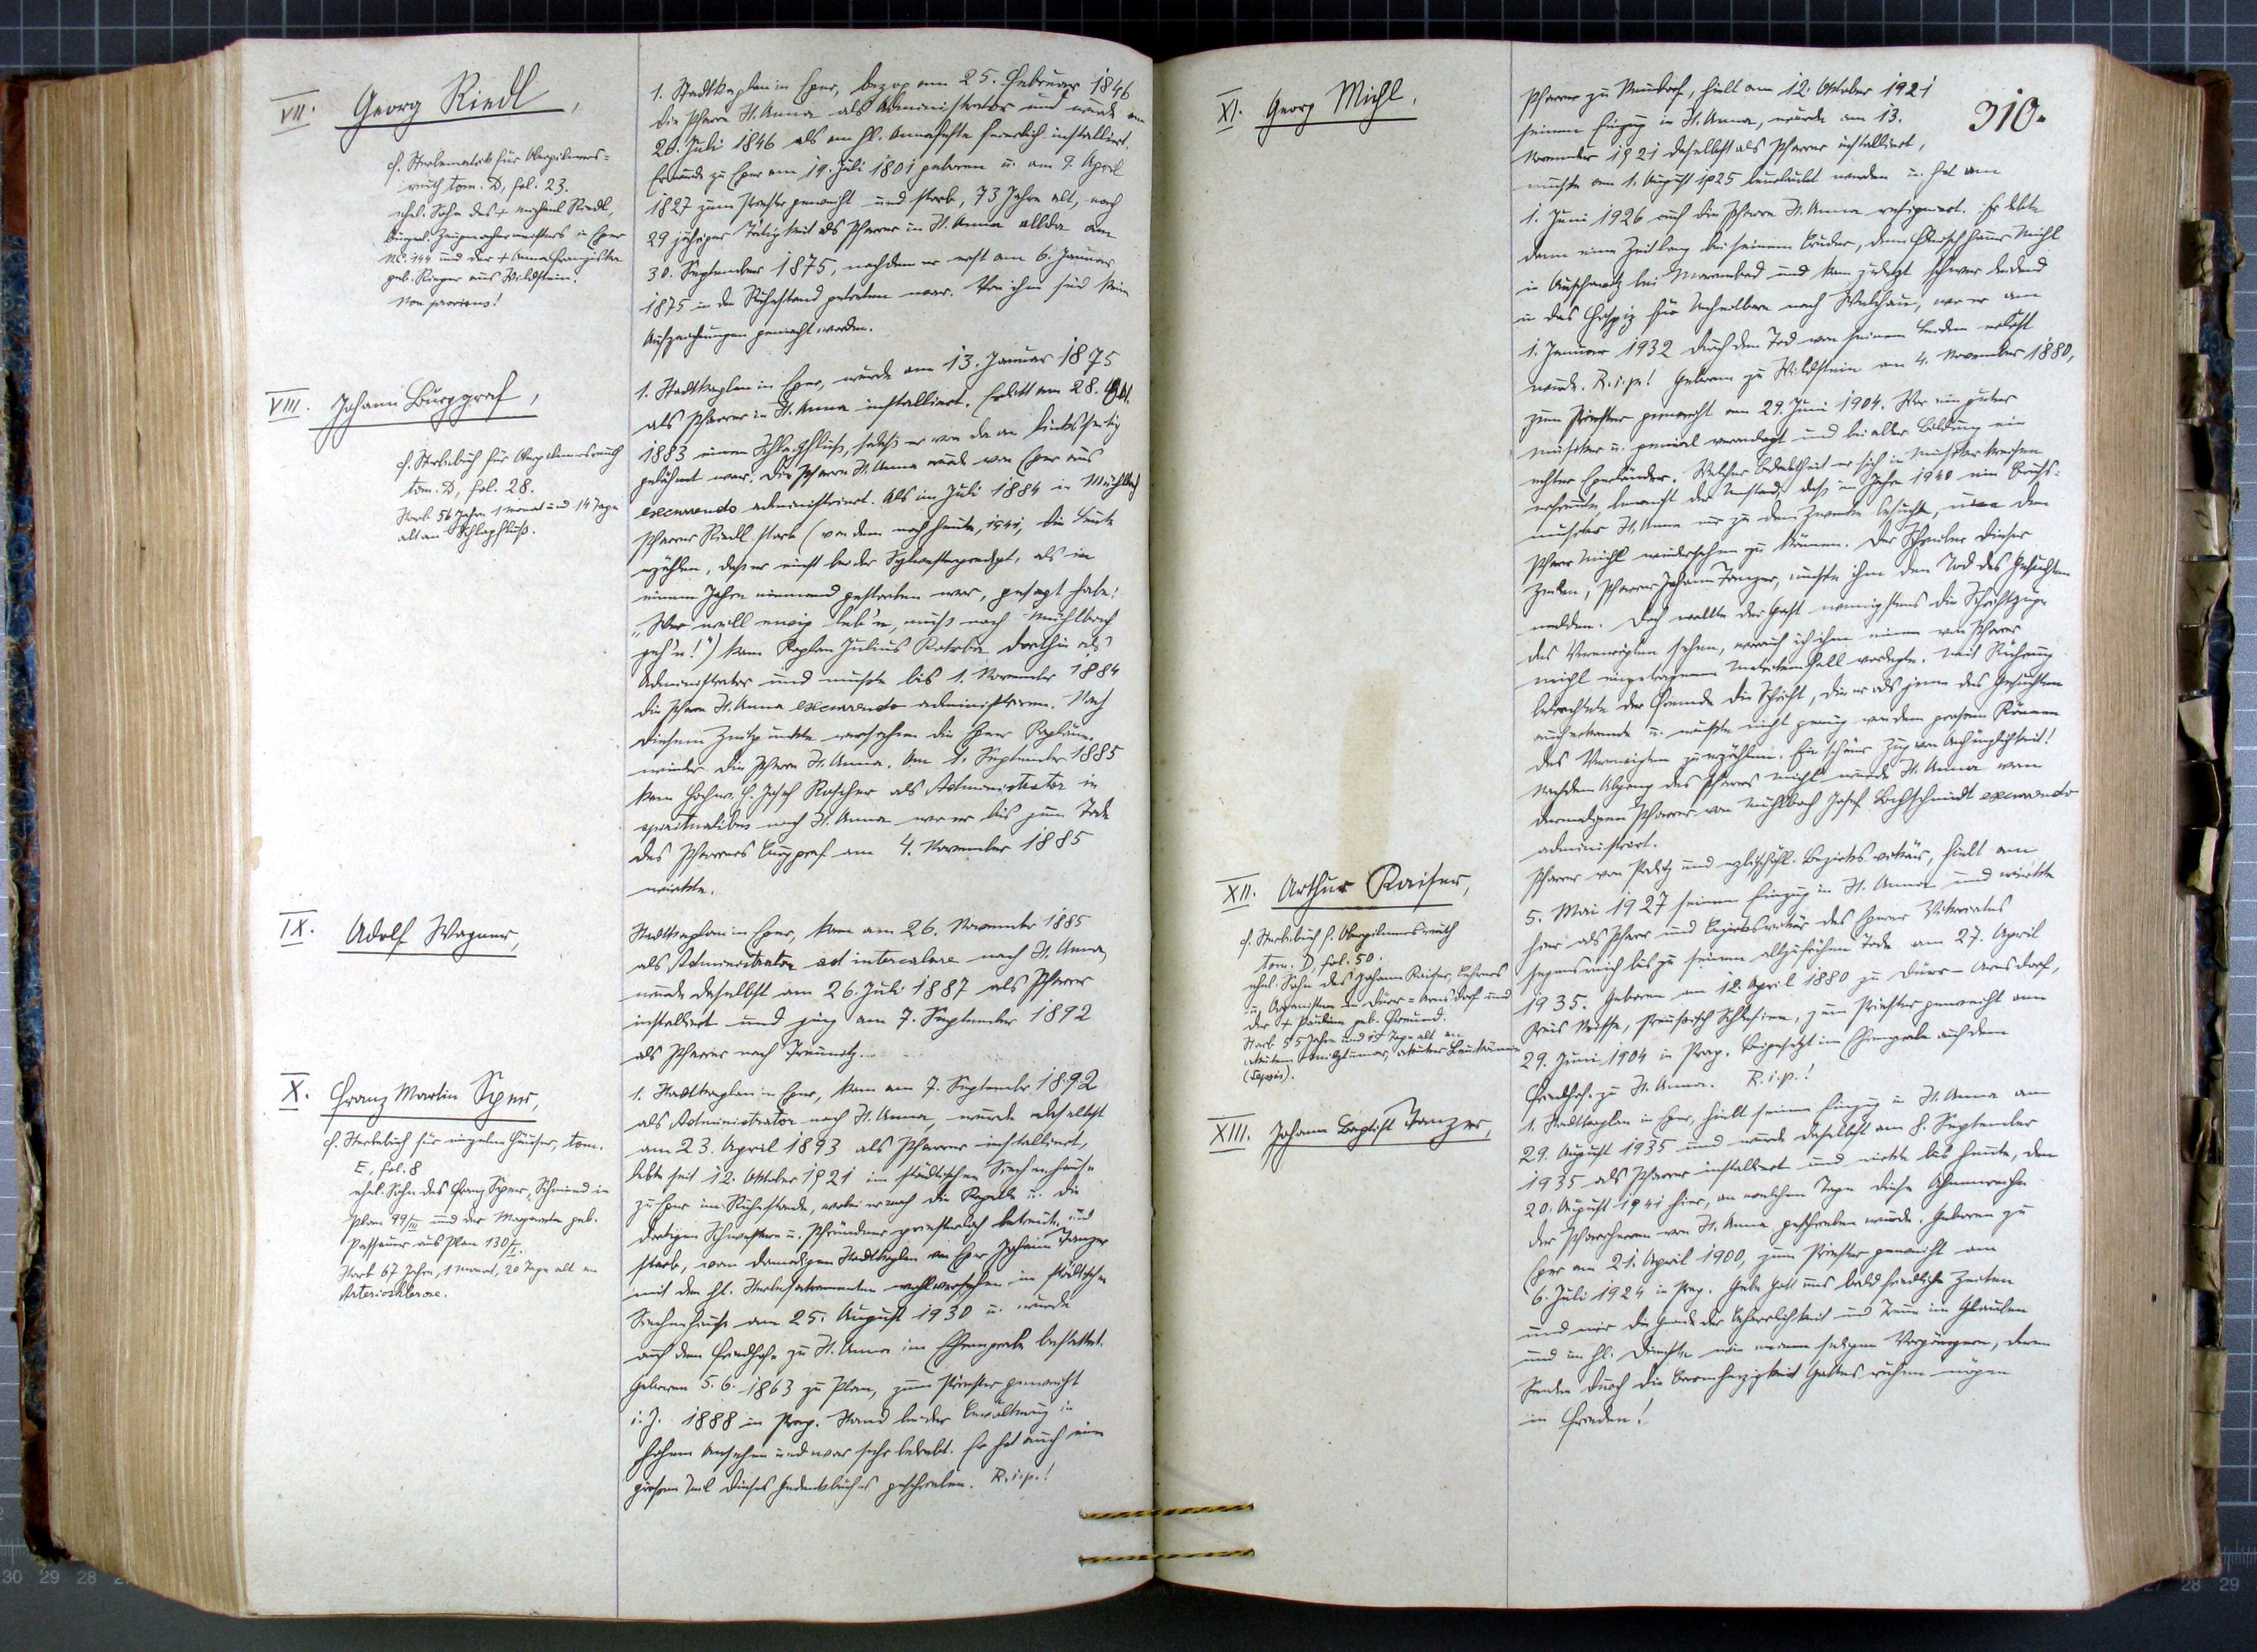 VII. Georg Riedl,
cf. Sterbematrik für Oberpilmers-
reuth tom. D, fol. 23.
ehel. Sohn des + Michael Riedl,
bürgerl. Zeugmachermeisters in Eger
No. 144 und der + Anna Franziska
geb. Rieger aus Wildstein.
1. Stadtkaplan in Eger, bezog am 25. Februar 1846
die Pfarre St. Anna als Administrator und wurde am
26. Juli 1846 als am hl. Annafeste feierlich installiert.
Er wurde zu Eger am 19. Juli 1801 geboren u. am 9. April
1827 zum Priester geweiht und starb, 73 Jahre alt, nach
29 jähriger Tätigkeit als Pfarrer in St. Anna allda am
30. September 1875, nachdem er erst am 6. Januar
1875 in den Ruhestand getreten war. Von ihm sind keine
Aufzeichnungen gemacht worden.
VIII. Johann Burggraf,
cf. Sterbebuch für Oberpilmersreuth
tom. D, fol. 28.
Starb 56 Jahre 1 Monat und 14 Tage
alt an Schlagfluß.
1. Stadtkaplan in Eger, wurde am 13. Januar 1875
als Pfarrer in St. Anna installiert. Erlitt am 28.
1883 einen Schlagfluß, sodaß er von da an linksseitig
gelähmt war. Die Pfarre St. Anna wurde von Eger aus
excurrendo administriert. Als im Juli 1884 in Mühlbach
Pfarrer Riedl starb (von dem noch heute, 1941, die Leute
erzählen, daß er einst bei der Sylvesterpredigt, als in
einem Jahre niemand gestorben war, gesagt habe:
„Wer will ewig leb'n, muß nach Mühlbach
geh'n!") kam Kaplan Julius dorthin als
Administrator und mußte bis 1. November 1884
die Pfarre St. Anna excurrendo administrieren. Nach
diesem Zeitpunkte versahen die Egerer Kapläne
wieder die Pfarre St. Anna. Am 1. September 1885
kam Hochw. H. Josef Rascher als Administrator in
spiritualibus nach St. Anna wo er bis zum Tode
des Pfarrers Burggraf am 4. November 1885
wirkte.
IX. Adolf Wagner,
Stadtkaplan in Eger, kam am 26. November 1885
als Administrator ad intercalare nach St. Anna,
wurde daselbst am 26. Juli 1887 als Pfarrer
installiert und ging am 7. September 1892
als Pfarrer nach Treunitz.
X. Franz Martin Sper,
cf. Sterbebuch für einzelne Häuser, tom.
E, fol. 8
ehel. Sohn des Franz Schmied in
Plan 99/III und der Margareta geb.
Passauer aus Plan 130/I.
Starb 67 Jahre, 1 Monat, 20 Tage alt an
Arteriosklerose.
1. Stadtkaplan in Eger, kam am 7. September 1892
als Administrator nach St. Anna, wurde daselbst
am 23. April 1893 als Pfarrer installiert,
lebte seit 12. Oktober 1921 im städtischen Siechenhause
zu Eger im Ruhestande, wobei er noch die Kapelle u. die
dortigen Schwestern u. Pfründner priesterlich betreute und
starb, vom damaligen Stadtkaplan von Eger Johann Tanzer
mit den hl. Sterbesakramenten wohlversehen im städtischen
Siechenhause am 25. August 1930 u. wurde
auf dem Friedhofe zu St. Anna im Ehrengrabe bestattet.
Geboren 5. 6. 1863 zu Plan, zum Priester geweiht
i. J. 1888 in Prag. Stand bei der Bevölkerung in
hohem Ansehen und war sehr beliebt. Er hat auch einen
großen Teil dieses Gedenkbuches geschrieben. R.i.p.!
310.
XI. Georg Michl,
Pfarrer zu Neudorf, hielt am 12. Oktober 1921
seinen Einzug in St. Anna, wurde am 13.
November 1921 daselbst als Pfarrer installiert,
mußte am 1. August 1925 beurlaubt werden u. hat am
1. Juni 1926 auf die Pfarre St. Anna resigniert. Er lebte
dann eine Zeitlang bei seinem Bruder, dem Michl
in Auschowitz bei Marienbad und kam zuletzt schwer leidend
in das Hospiz für Unheilbare nach Walchau, wo er am
1. Januar 1932 durch den Tod von seinem Leiden erlöst
wurde. R.i.p.! Geboren zu Wildstein am 4. November 1880,
zum Priester geweiht am 29. Juni 1904. War ein guter
Musiker u. genial veranlagt und bei aller Bildung ein
echter Egerländer. Welcher Beliebtheit er sich in Musikerkreisen
erfreute, beweist der Umstand, daß im Jahre 1940 ein Berufs-
musiker St. Anna nur zu dem Zwecke besuchte, um den
Pfarrer Michl wiedersehen zu können. Der Schreiber dieser
Zeilen, Pfarrer Johann Tanzer, mußte ihm den Tod des Gesuchten
melden. Doch wollte der Gast wenigstens die Schriftzüge
des Verewigten sehen, worauf ich ihm einen von Pfarrer
Michl eingetragenen Matrikenfall vorlegte. Mit Rührung
betrachtete der Fremde die Schrift, die er als jene des Gesuchten
anerkannte u. wußte nicht genug von dem großen Können
des Verewigten zu erzählen. Ein schöner Zug von Anhänglichkeit!
Nach dem Abgang des Pfarrers Michl wurde St. Anna vom
damaligen Pfarrer von Mühlbach Josef Bachschmidt excurrendo
administriert.
XII. Arthur Kaiser,
cf. Sterbebuch f. Oberpilmersreuth
tom. D, fol. 50.
ehel. Sohn des Johann Kaiser, Lehrers
u. Organisten in Dürr-Arnsdorf und
der + Pauline geb. Freund.
Starb 55 Jahre und 15 Tage alt an
akutem Milztumor, akuter Leukämie
(Sepsis).
Pfarrer von Palitz und erzbischöfl. Bezirksvikär, hielt am
5. Mai 1927 seinen Einzug in St. Anna und wirkte
hier als Pfarrer und Bezirksvikär des Egerer Vikariates
segensreich bis zu seinem allzufrühen Tode am 27. April
1935. Geboren am 12. April 1880 zu Dürr-Arnsdorf,
Kreis Neisse, Preußisch Schlesien, zum Priester geweiht am
29. Juni 1904 in Prag. Beigesetzt im Ehrengrabe auf dem
Friedhofe zu St. Anna. R.i.p.!
XIII. Johann Baptist Tanzer,
1. Stadtkaplan in Eger, hielt seinen Einzug in St. Anna am
29. August 1935 und wurde daselbst am 8. September
1935 als Pfarrer installiert und wirkte bis heute, den
20. August 1941 hier, an welchem Tage diese Ahnenreihe
der Pfarrherren von St. Anna geschrieben wurde. Geboren zu
Eger am 21. April 1900, zum Priester geweiht am
6. Juli 1924 in Prag. Gebe Gott uns bald friedliche Zeiten
und mir die Gnade der Beharrlichkeit und Treue im Glauben
und im hl. Dienste wie meinen seligen Vorgängern, deren
Seelen durch die Barmherzigkeit Gottes ruhen mögen
in Frieden!